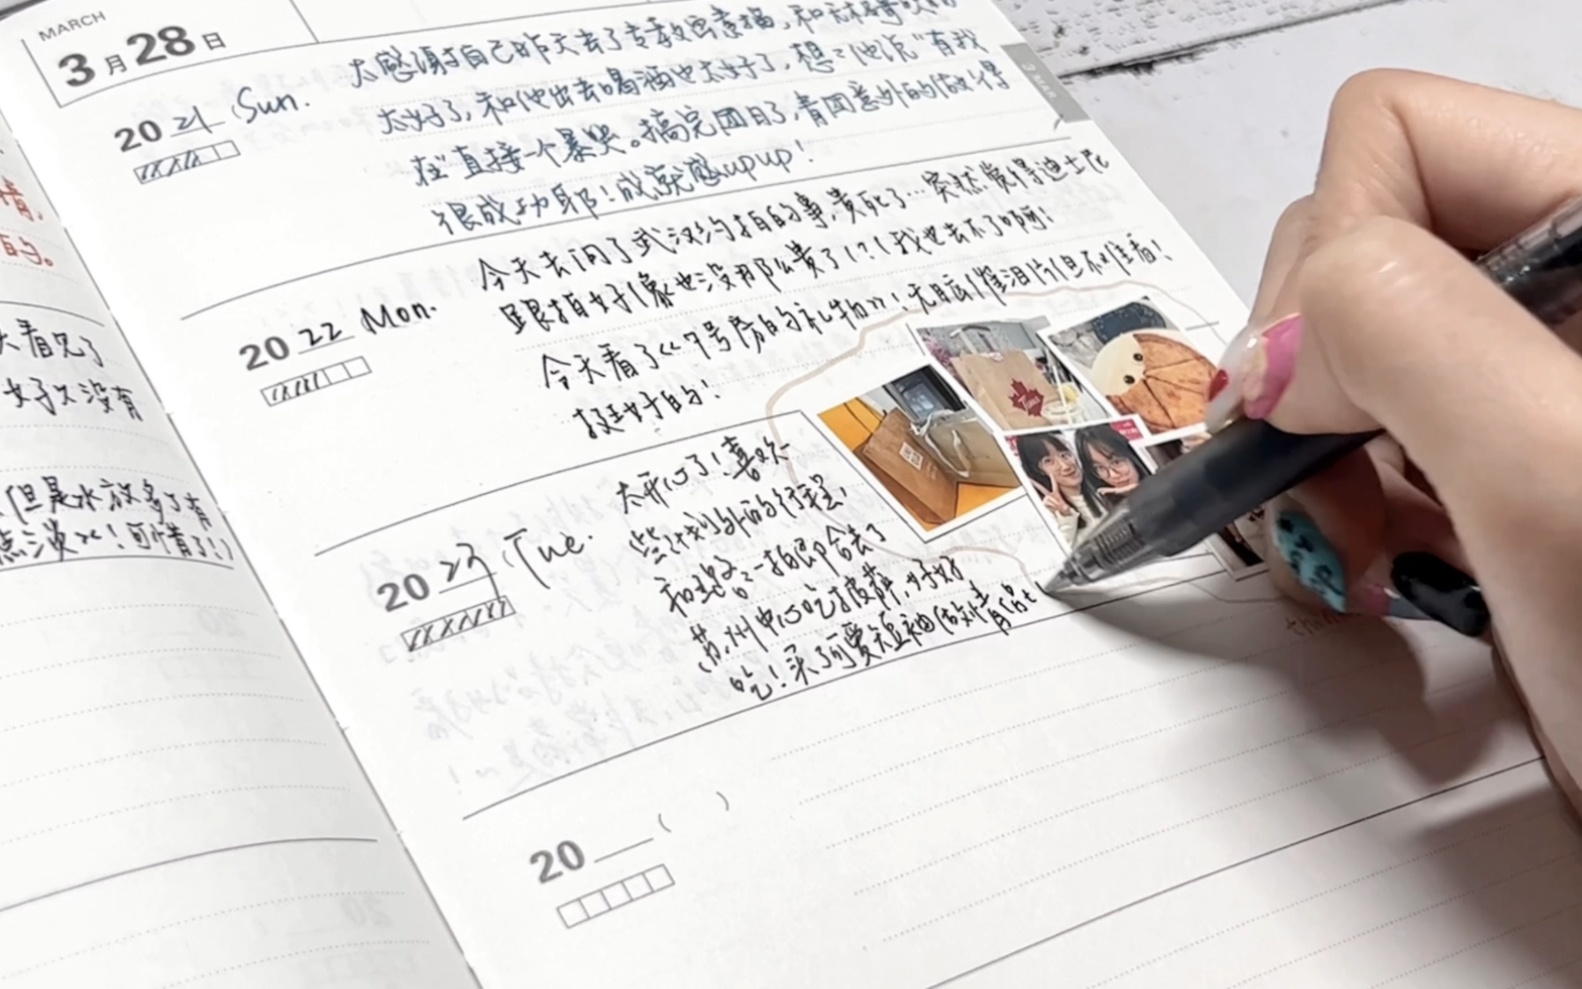 MARCH
3月28日
20 21 Sun.
太感谢自己昨天去了
太好了,和他出去喝酒也太好了,想想他说"有我
在"直接一个暴哭。搞完团日了,青团意外的做得
很成功耶!成就感upup!
20 22 Mon.
今天去问了武汉约拍的事,贵死了…突然觉得迪士尼
跟拍好像也没那么贵了!?(我也去不了啊)
今天看了《7号房的礼物》!无脑催泪片但不难看!
挺好的!
20 23 Tue.
太开心了!喜欢一
些计划外的行程,
和 一拍即合去了
苏州中心吃披萨,好好
吃!买了可爱短袖做情
20 ( )
情,
的。
看见了
好久没有
(但是水放多了有
点淡 !可惜了!)